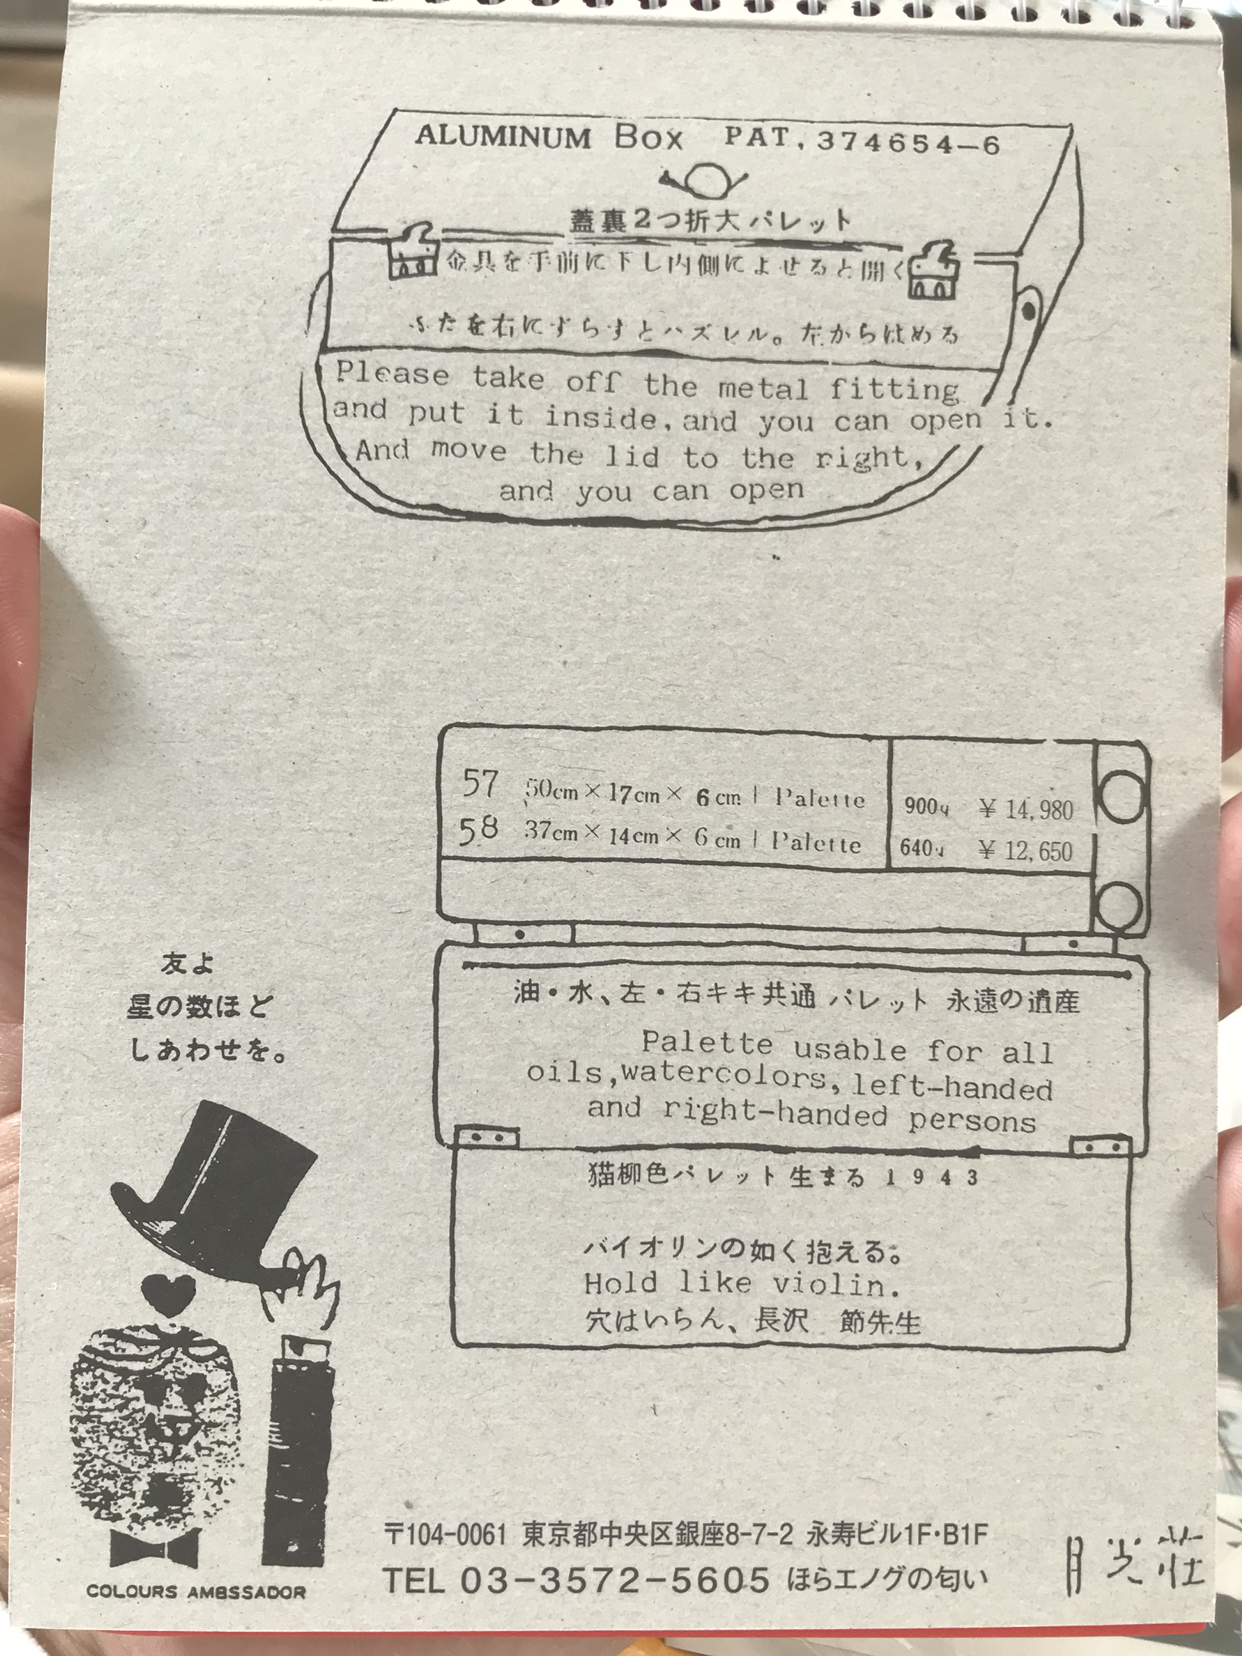 ALUMINUM Box PAT. 374654-6
蓋裏2つ折大パレット
金具を手前に下し内側によせると開く
ふたを右にずらすとハズレル。左からはめる
Please take off the metal fitting
and put it inside, and you can open it.
And move the lid to the right,
and you can open
57 50cm×17cm×6cm | Palette 900g ¥14,980
58 37cm×14cm×6cm | Palette 640g ¥12,650
油・水、左・右キキ共通パレット 永遠の遺産
Palette usable for all
oils, watercolors, left-handed
and right-handed persons
猫柳色パレット生まる 1943
バイオリンの如く抱える。
Hold like violin.
穴はいらん、長沢 節先生
友よ
星の数ほど
しあわせを。
COLOURS AMBSSADOR
〒104-0061 東京都中央区銀座8-7-2 永寿ビル1F・B1F
TEL 03-3572-5605 ほらエノグの匂い
月光荘